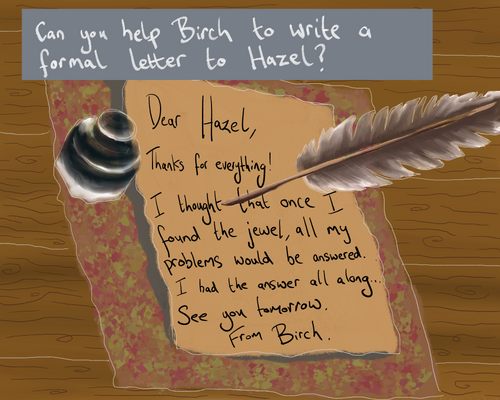 Can you help Birch to write a
formal letter to Hazel?
Dear Hazel,
Thanks for everything!
I thought that once I
found the jewel, all my
problems would be answered.
I had the answer all along...
See you tomorrow.
From Birch.